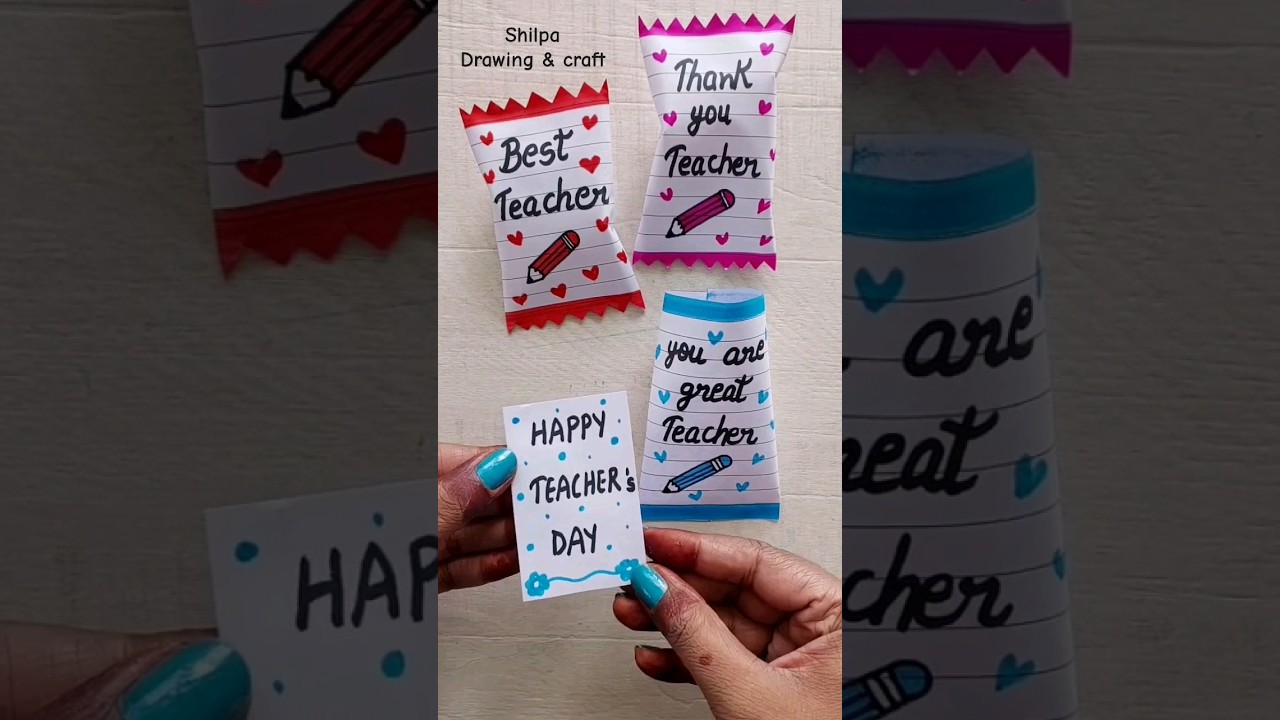 Shilpa
Drawing & craft
Best
Teacher
Thank
you
Teacher
you are
great
Teacher
HAPPY
TEACHER's
DAY
HAP
are
eat
cher